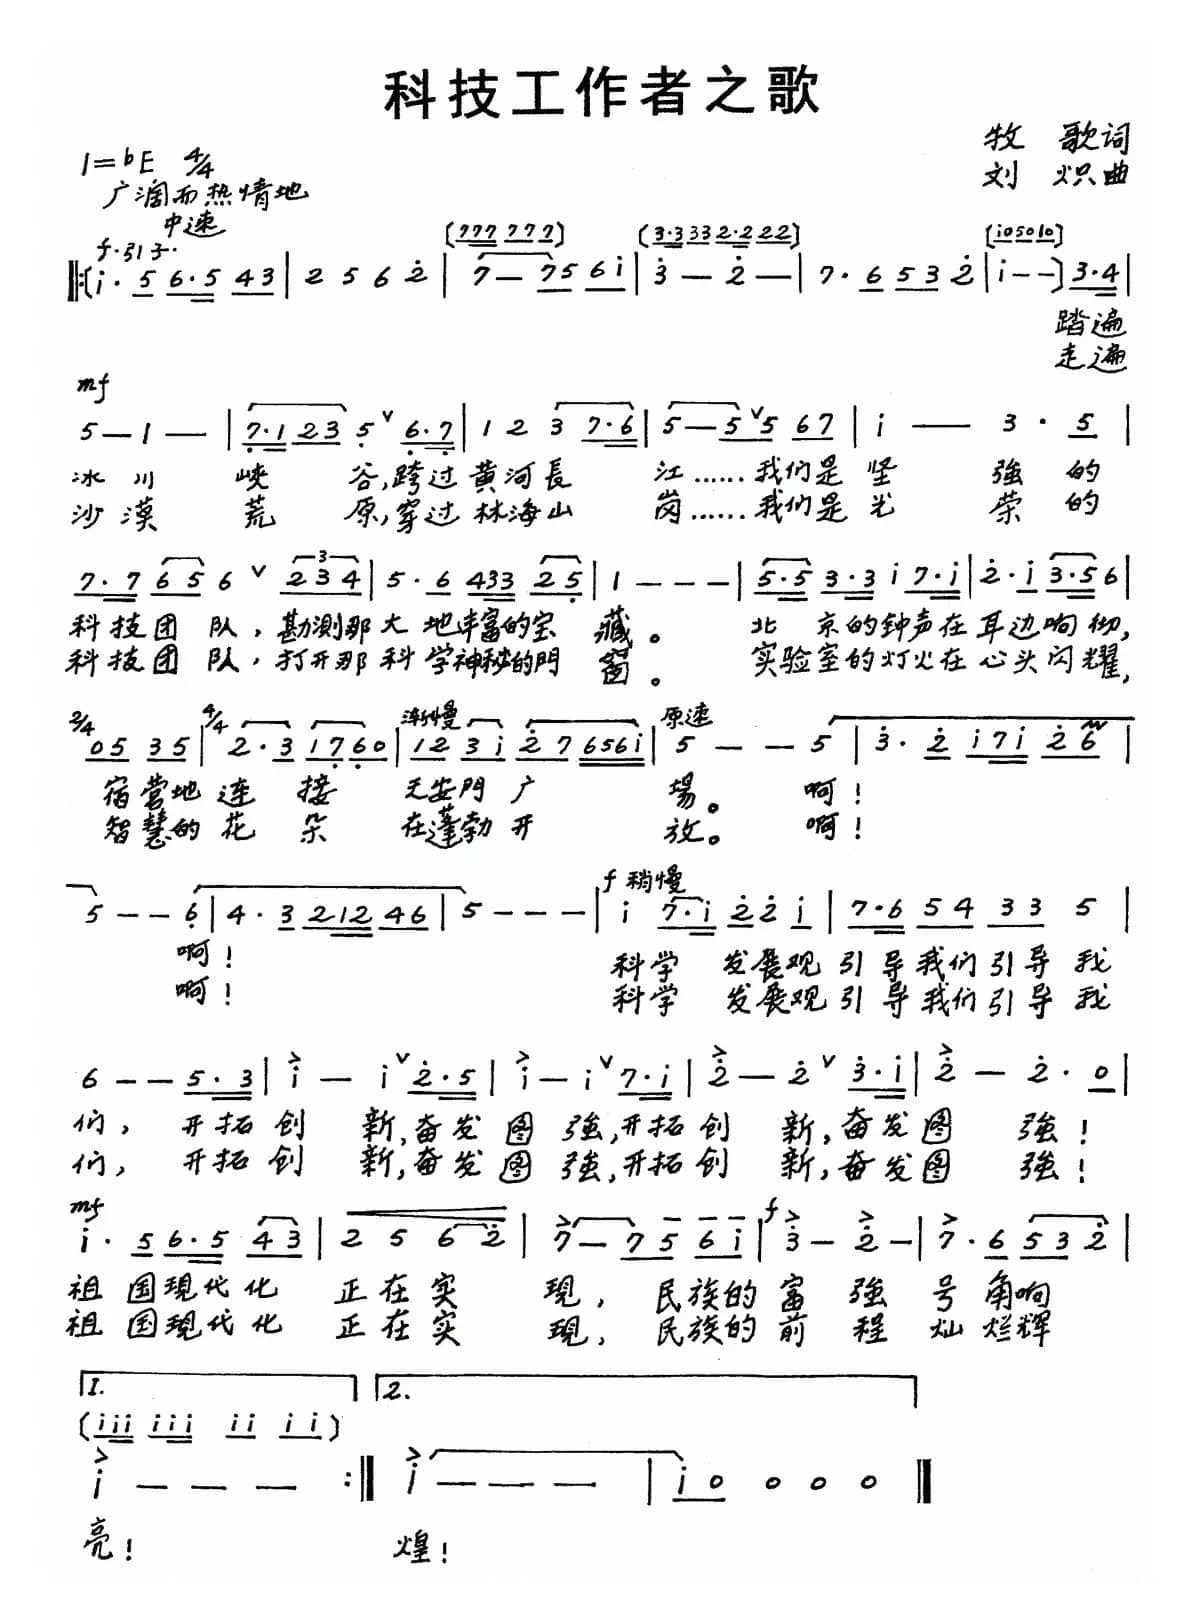 科技工作者之歌
牧 歌词
1=bE 4/4
刘 炽曲
广阔而热情地
中速
f·引子·
(777 777) (3·333 2·222) (i05010)
‖:(i·5 6·5 43 | 2 5 6 2 | 7— 75 6i | 3—2— | 7·6 53 2 | i——) 3·4 |
踏遍
走遍
mf
5—1— | 7·123 5 ∨ 6·7 | 1 2 3 7·6 | 5—5 ∨5 67 | i — 3·5 |
冰川峡谷,跨过黄河長江……我们是坚強的
沙漠荒原,穿过林海山岗……我们是光荣的
3
7·7 65 6 ∨ 234 | 5·6 433 25 | 1——— | 5·5 3·3 i 7·i | 2·i 3·5 6 |
科技团队,勘測那大地丰富的宝藏。北京的钟声在耳边响彻,
科技团队,打开那科学神秘的門窗。实验室的灯火在心头闪耀,
2/4 4/4 渐慢 原速
05 35 | 2·3 1760 | 12 3i 27 656i | 5——5 | 3·2 i7i 26 |
宿营地连接天安門广場。啊!
智慧的花朵在蓬勃开放。啊!
f 稍慢
5——6 | 4·3 212 46 | 5——— | i 7·i 22 i | 7·6 54 33 5 |
啊! 科学发展观引导我们引导我
啊! 科学发展观引导我们引导我
6——5·3 | i—i ∨ 2·5 | i—i ∨ 7·i | 2—2 ∨ 3·i | 2—2·0 |
们,开拓创新,奋发图強,开拓创新,奋发图強!
们,开拓创新,奋发图強,开拓创新,奋发图強!
mf f
i·5 6·5 43 | 2 5 6 2 | 7—75 6i | 3—2— | 7·6 53 2 |
祖国現代化正在实現,民族的富強号角响
祖国現代化正在实現,民族的前程灿烂辉
1. 2.
(iii iii ii ii)
i——— :‖ i——— | i0 0 0 0 ‖
亮! 煌!